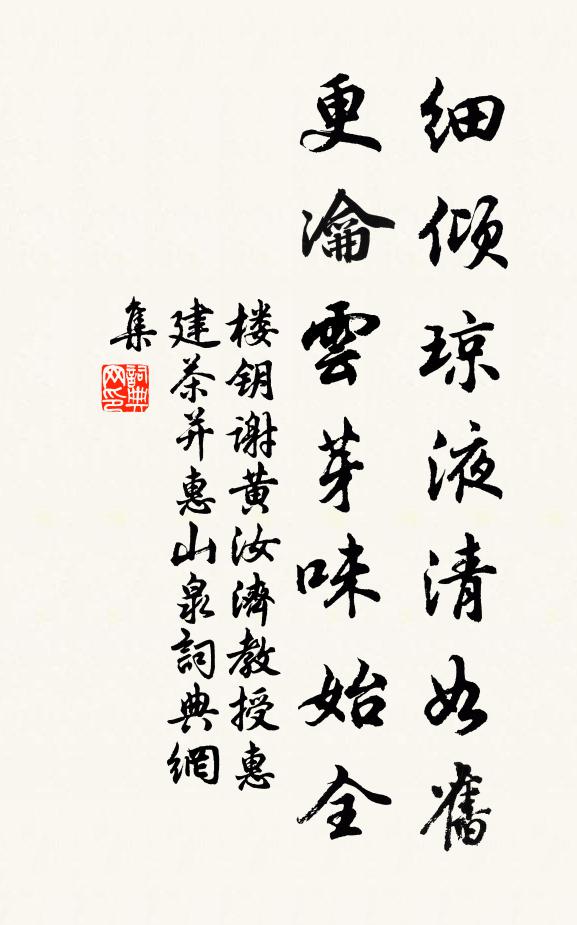 细倾琼液清如舊
更瀹雲芽味始全
楼钥谢黄汝濟教授惠
建茶并惠山泉詞典網
集
詞典
网印